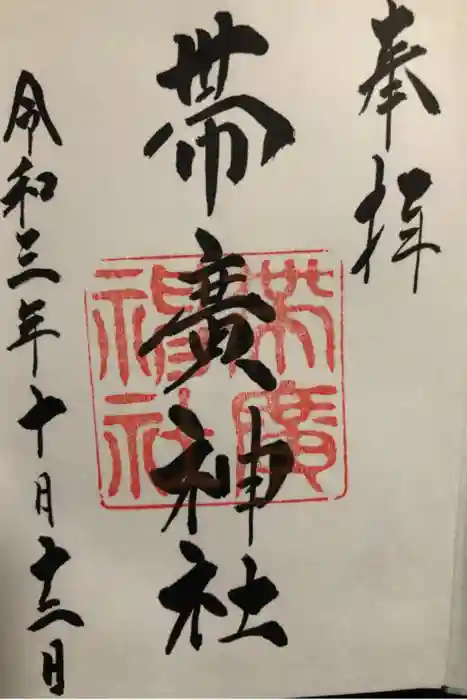 奉拝
帯廣神社
令和三年十月十三日
帯廣神社